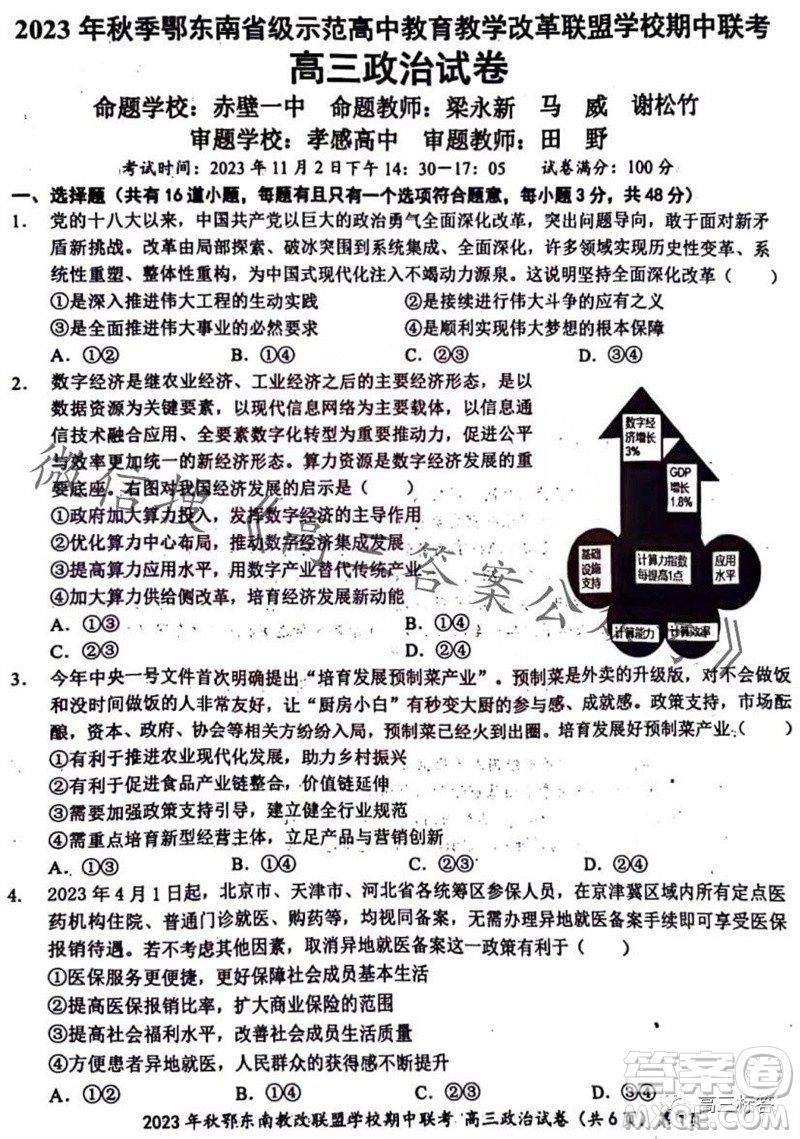 2023年秋季鄂东南省级示范高中教育教学改革联盟学校期中联考
高三政治试卷
命题学校：赤壁一中 命题教师：梁永新 马 威 谢松竹
审题学校：孝感高中 审题教师：田 野
考试时间：2023年11月2日下午14：30-17：05 试卷满分：100分
一、选择题（共有16道小题，每题有且只有一个选项符合题意，每小题3分，共48分）
1. 党的十八大以来，中国共产党以巨大的政治勇气全面深化改革，突出问题导向，敢于面对新矛
盾新挑战。改革由局部探索、破冰突围到系统集成、全面深化，许多领域实现历史性变革、系
统性重塑、整体性重构，为中国式现代化注入不竭动力源泉。这说明坚持全面深化改革（ ）
①是深入推进伟大工程的生动实践 ②是接续进行伟大斗争的应有之义
③是全面推进伟大事业的必然要求 ④是顺利实现伟大梦想的根本保障
A．①② B．①④ C．②③ D．③④
2. 数字经济是继农业经济、工业经济之后的主要经济形态，是以
数据资源为关键要素，以现代信息网络为主要载体，以信息通
信技术融合应用、全要素数字化转型为重要推动力，促进公平
与效率更加统一的新经济形态。算力资源是数字经济发展的重
要底座。右图对我国经济发展的启示是（ ）
①政府加大算力投入，发挥数字经济的主导作用
②优化算力中心布局，推动数字经济集成发展
③提高算力应用水平，用数字产业替代传统产业
④加大算力供给侧改革，培育经济发展新动能
A．①③ B．①④
C．②③ D．②④
数字经
济增长
3%
GDP
增长
1.8%
基础
设施
支持
计算力指数
每提高1点
应用
水平
计算能力
计算效率
3. 今年中央一号文件首次明确提出“培育发展预制菜产业”。预制菜是外卖的升级版，对不会做饭
和没时间做饭的人非常友好，让“厨房小白”有秒变大厨的参与感、成就感。政策支持，市场酝
酿，资本、政府、协会等相关方纷纷入局，预制菜已经火到出圈。培育发展好预制菜产业（ ）
①有利于推进农业现代化发展，助力乡村振兴
②有利于促进食品产业链整合，价值链延伸
③需要政策支持引导，建立健全行业规范
④需重点培育新型经营主体，立足产品与营销创新
A．①③ B．①④ C．②③ D．②④
4. 2023年4月1日起，北京市、天津市、河北省各统筹区参保人员，在京津冀区域内所有定点医
药机构住院、普通门诊就医、购药等，均视同备案，无需办理异地就医备案手续即可享受医保
报销待遇。若不考虑其他因素，取消异地就医备案这一政策有利于（ ）
①医保服务更便捷，更好保障社会成员基本生活
②提高医保报销比率，扩大商业保险的范围
③提高社会福利水平，改善社会成员生活质量
④方便患者异地就医，人民群众的获得感增强
A．①② B．①④ C．②③ D．③④
2023年秋鄂东南教改联盟学校期中联考 高三政治试卷（共6页）第1页
微信搜《高三答案公众号》
答案圈
高三标答